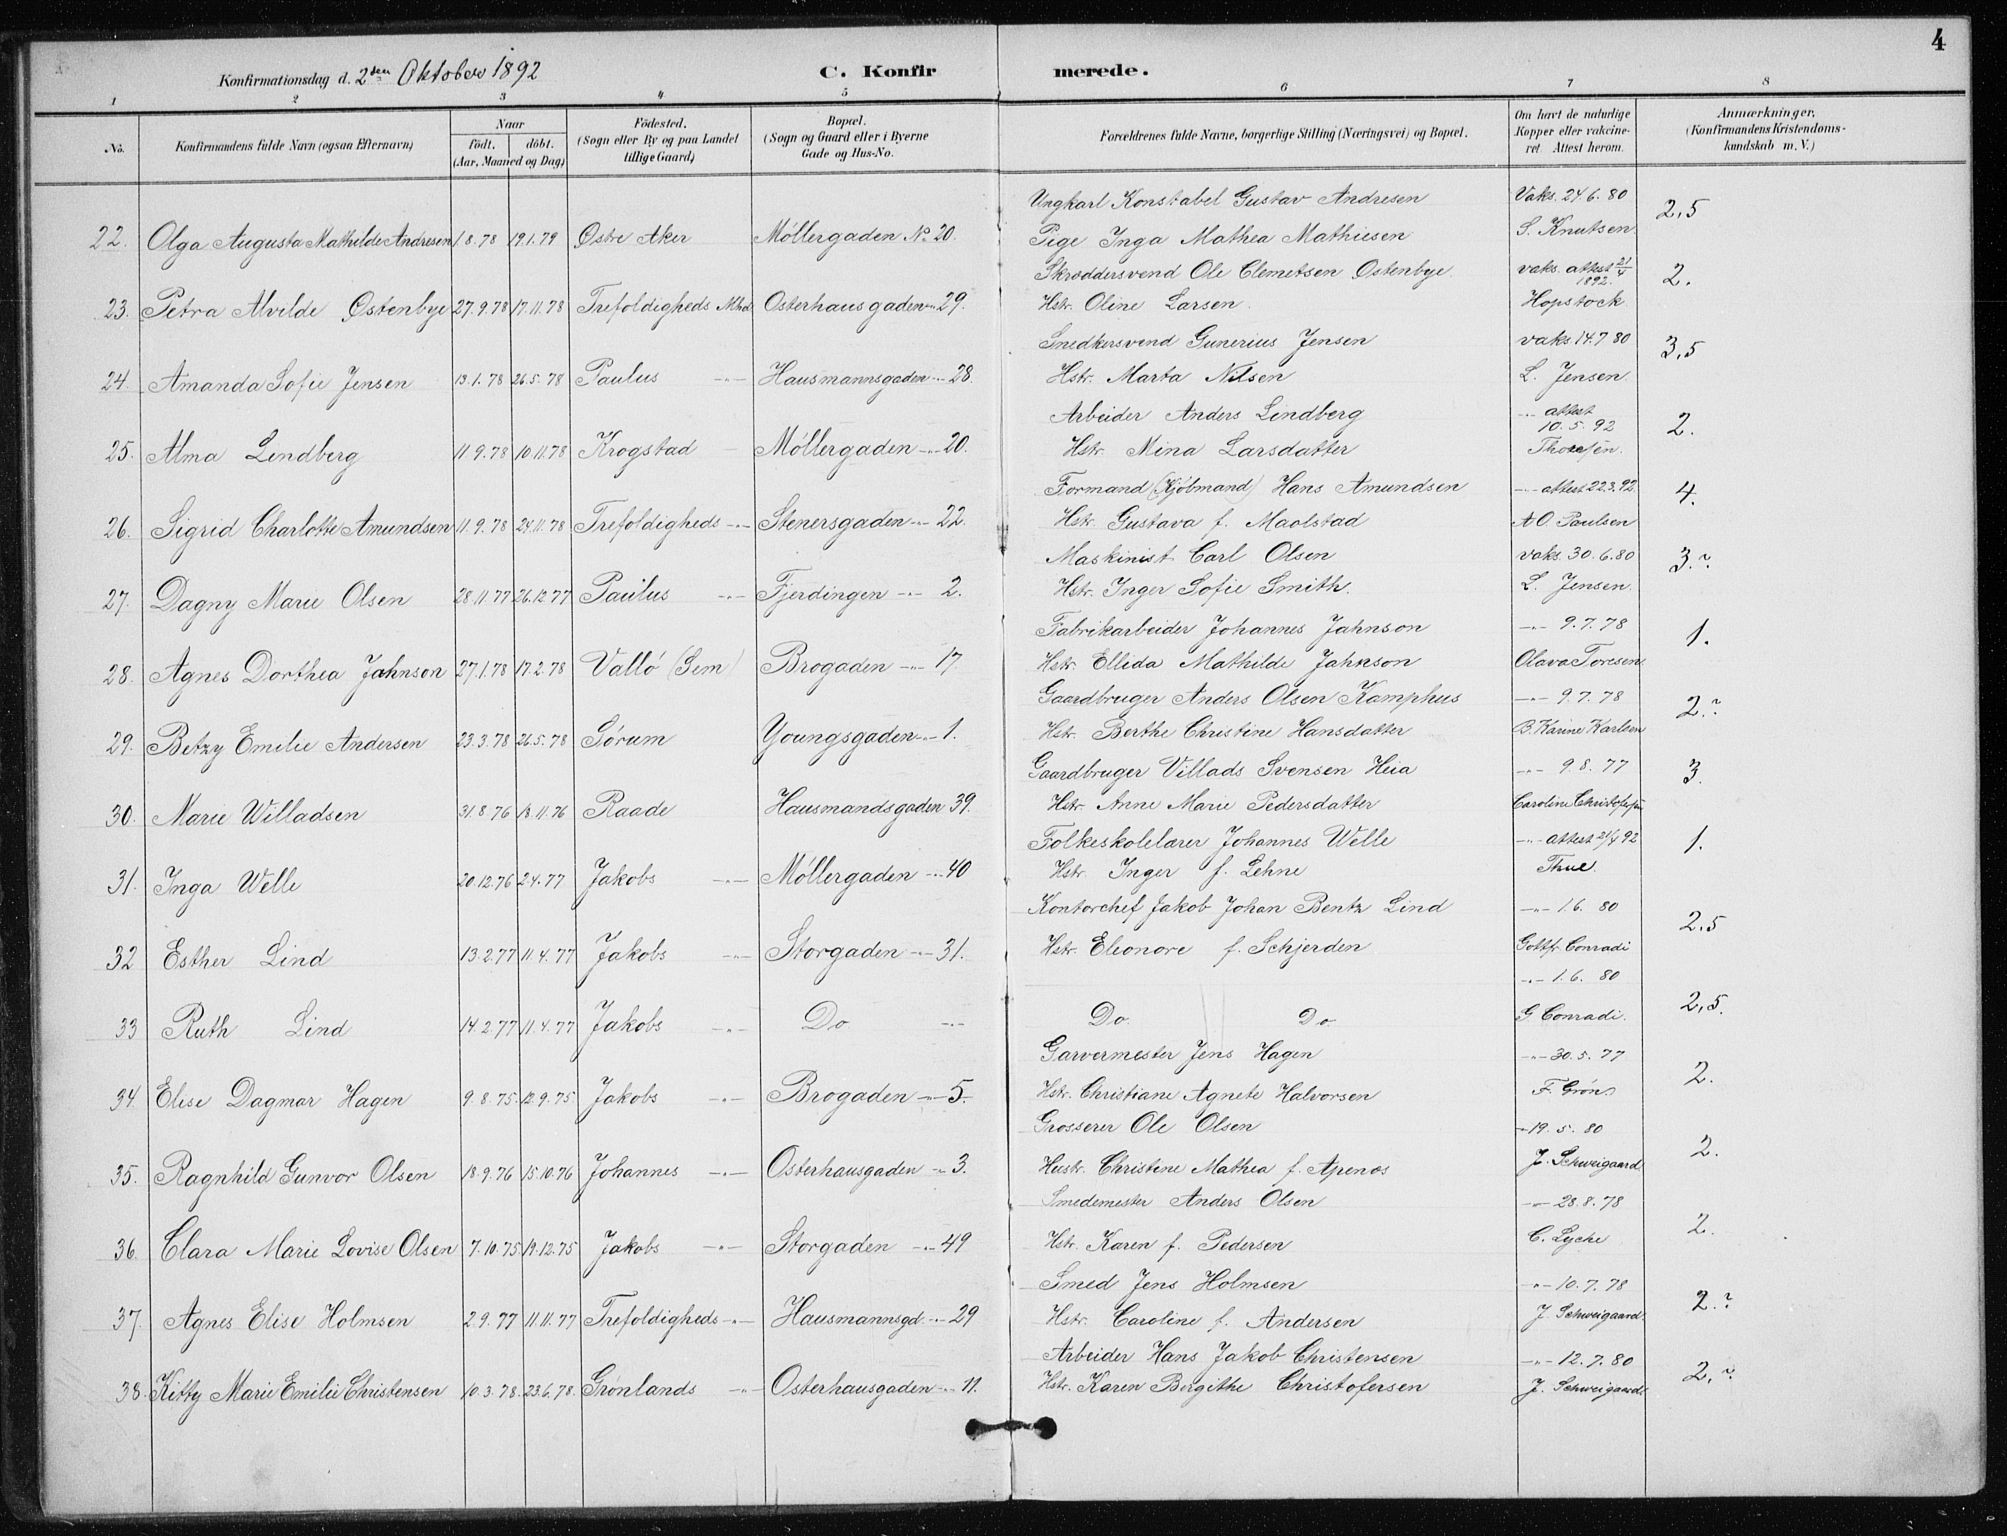 4
Konfirmationsdag d. 2den Oktober 1892
C. Konfirmerede.
1 2 3 4 5 6 7 8
No. Konfirmandens fulde Navn (ogsaa Efternavn) Naar födt. döbt. (Aar, Maaned og Dag) Födested. (Sogn eller By og paa Landet tillige Gaard) Bopæl. (Sogn og Gaard eller i Byerne Gade og Hus-No. Forældrenes fulde Navne, borgerlige Stilling (Næringsvei) og Bopæl. Om havt de naturlige Kopper eller vakcineret. Attest herom. Anmærkninger. (Konfirmandens Kristendomskundskab m. V.)
Ungkarl Konstabel Gustav Andresen Vaks. 24.6.80 2,5
22. Olga Augusta Mathilde Andresen 1.8.78 19.1.79 Østre Aker Møllergaden No 20. Pige Inga Mathea Mathiesen S. Knutsen
Skræddersvend Ole Clemetsen Østenbye vaks. attest 21/4 1892. 2.
23. Petra Alvilde Østenbye 27.9.78 17.11.78 Trefoldigheds Mhd Osterhausgaden -"- 29. Hstr. Oline Larsen. Hopstock
Snedkersvend Gunerius Jensen vaks 14.7.80 3,5
24. Amanda Sofie Jensen 13.1.78 26.5.78 Paulus -"- Hausmannsgaden -"- 28. Hstr. Marta Nilsen L. Jensen.
Arbeider Anders Lindberg -"- attest 10.5.92 2.
25. Alma Lindberg 11.9.78 10.11.78 Krogstad - Møllergaden -"- 20. Hstr. Mina Larsdatter Thoresen.
Formand (Kjöbmand) Hans Amundsen -"- attest 22.3.92 4.
26. Sigrid Charlotte Amundsen 11.9.78 24.11.78 Trefoldigheds -"- Stenersgaden -"- 22. Hstr. Gustava f. Maolstad A O. Paulsen
Maskinist Carl Olsen vaks. 30.6.80 3.?
27. Dagny Marie Olsen 28.11.77 26.12.77 Paulus -"- Fjerdingen -"- 2. Hstr. Inger Sofie Smith. L. Jensen.
Fabrikarbeider Johannes Jahnson -"- 9.7.78 1.
28. Agnes Dorthea Jahnson 27.1.78 17.2.78 Vallö (Sem) Brogaden -"- 17. Hstr. Ellida Mathilde Jahnson Olava Toresen.
Gaardbruger Anders Olsen Kamphus -"- 9.7.78 2.?
29. Betzy Emilie Andersen 23.3.78 26.5.78 Sørum Youngsgaden -"- 1. Hstr. Berthe Christine Hansdatter B. Karine Karlsen
Gaardbruger Villads Svensen Heia -"- 9.8.77 3.
30. Marie Willadsen 31.8.76 18.11.76 Raade Hausmandsgaden 39. Hstr. Anne Marie Pedersdatter Caroline Christofesen
Folkeskolelærer Johannes Welle -"- attest 21/4 92 1.
31. Inga Welle 20.12.76 2.4.77 Jakobs -"- Møllergaden -"- 40 Hstr. Inger f. Lehne Thue.
Kontorchef Jakob Johan Bentz Lind -"- 1.6.80 2,5
32 Esther Lind 13.2.77 11.4.77 Jakobs -"- Storgaden -"- 31. Hstr. Eleonore f. Schjerden Gottfr. Conradi
-"- 1.6.80
33 Ruth Lind 14.2.77 11.4.77 Jakobs -"- Do -"- Do. Do G Conradi. 2,5.
Garvermester Jens Hagen -"- 30.5.77 2.
34. Elise Dagmar Hagen 9.8.75. 12.9.75 Jakobs -"- Brogaden -"- 5. Hstr. Christiane Agnete Halvorsen F. Grön
Grosserer Ole Olsen -"- 19.5.80 2.
35. Ragnhild Gunvor Olsen 18.9.76 15.10.76 Johannes -"- Osterhausgaden -"- 3. Hustr. Christine Mathea f. Apenæs J. Schweigaard.
Smedemester Anders Olsen -"- 28.8.78 2.
36. Clara Marie Lovise Olsen 7.10.75 19.12.75 Jakobs -"- Storgaden -"- 49 Hstr. Karen f. Pedersen C. Lyche
Smed Jens Holmsen -"- 10.7.78 2.?
37. Agnes Elise Holmsen 2.9.77 11.11.77 Trefoldigheds -"- Hausmannsgd. -"- 29 Hstr. Caroline f. Andersen J. Schweigaard.
Arbeider Hans Jakob Christensen -"- 12.7.80 2.?
38. Kitty Marie Emilie Christensen 10.3.78. 23.6.78. Grønlands -"- Osterhausgaden -"- 11. Hstr. Karen Bergithe Christofersen J. Schweigaard.